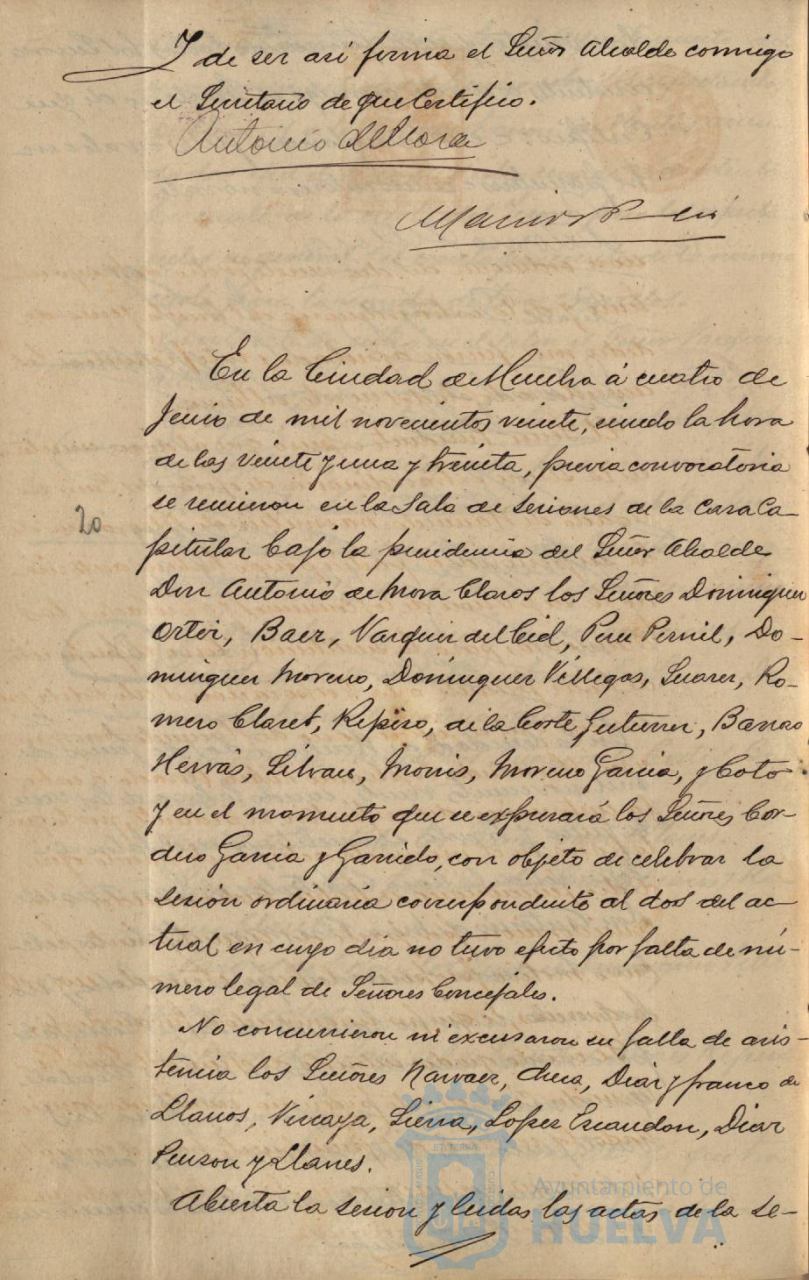 Y de ser así firma el Señor Alcalde conmigo
el Secretario de que Certifico.
Antonio de Mora
En la Ciudad de Huelva á cuatro de
Junio de mil novecientos veinte, siendo la hora
de las veinte y una y treinta, previa convocatoria
se reunieron en la Sala de Sesiones de la Casa Ca-
20
pitular bajo la presidencia del Señor Alcalde
Don Antonio de Mora Claros los Señores Dominguez
Ortiz, Baez, Vazquez del Cid, Perez Pernil, Do-
minguez Moreno, Dominguez Villegas, Suarez, Ro-
mero Claret, Repiso, de la Corte Gutierrez, Barrao
Hervás, Silvan, Morris, Moreno Garcia, y Coto.
Y en el momento que se expresará los Señores Cor-
dero Garcia y Garrido, con objeto de celebrar la
sesión ordinaria correspondiente al dos del ac-
tual en cuyo dia no tuvo efecto por falta de nú-
mero legal de Señores Concejales.
No concurrieron ni excusaron su falta de asis-
tencia los Señores Narvaez, Checa, Diaz y franco de
Llanos, Vizcaya, Sierra, Lopez Escandon, Diaz
Pinzon y Llanes.
Abierta la sesion y leidas las actas de la se-
Ayuntamiento de
HUELVA